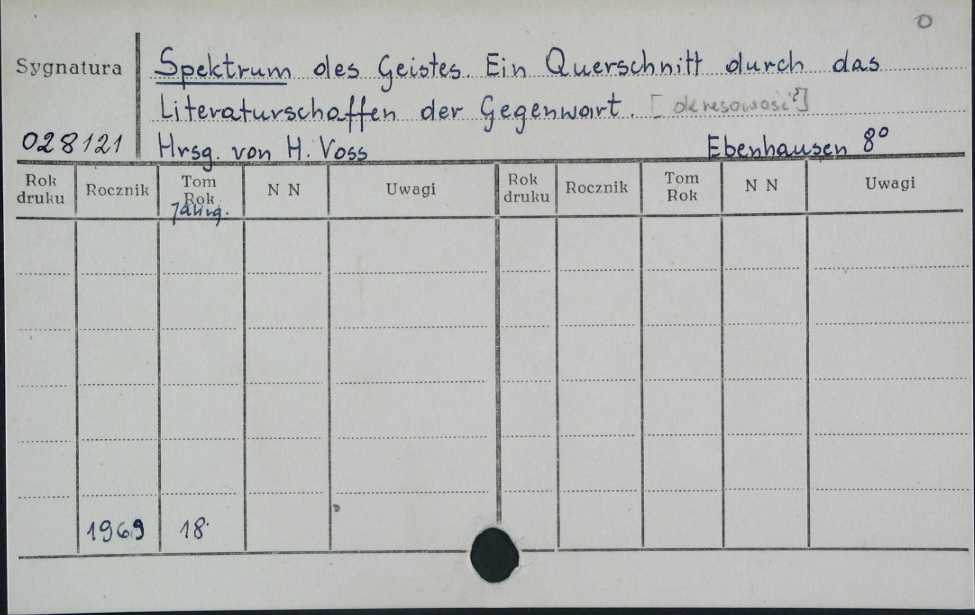 0
Sygnatura
Spektrum des Geistes. Ein Querschnitt durch das
Literaturschaffen der Gegenwart. [okresowość?]
028121
Hrsg. von H. Voss Ebenhausen 8°
Rok druku Rocznik Tom Rok Jahrg. N N Uwagi Rok druku Rocznik Tom Rok N N Uwagi
1969 18